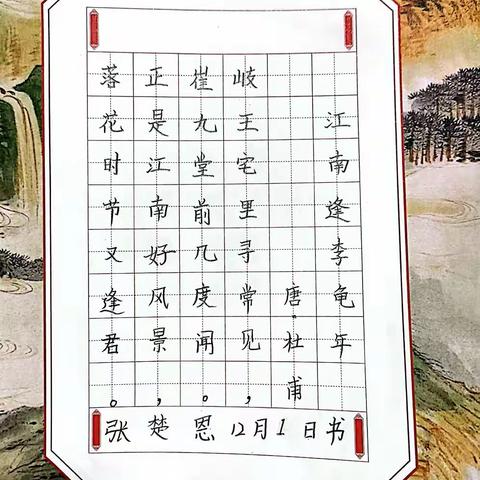 江南逢李龟年
唐·杜甫
岐王宅里寻常见，
崔九堂前几度闻。
正是江南好风景，
落花时节又逢君。
张楚恩12月1日书